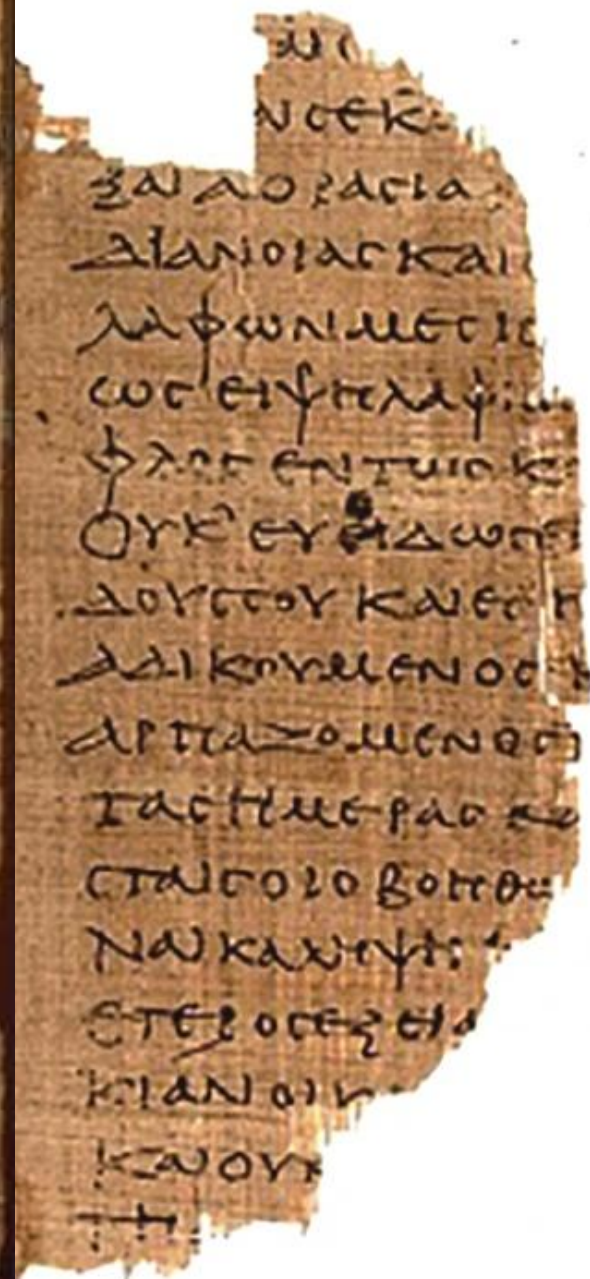 ΜΕ
ΝСΕΚ
ΞΑΙΑΟΡΑСΙΑ
ΔΙΑΝΟΙΑСΚΑΙ
ΛΑΦωΝΜΕСΙС
ωСΕΙΨΗΛΑΦΙ
ΦΛΟСΕΝΤωΙСΚ
ΟΥΚΕΥΟΙΔωСΕΙ
ΔΟΥССΟΥΚΑΙΕСΗ
ΑΔΙΚΟΥΜΕΝΟСΚ
ΑΡΠΑΖΟΜΕΝΟСΠ
ΤΑСΗΜΕΡΑСΚΑ
СΤΑΙСΟΙΟΒΟΗΘω
ΝΑΙΚΑΛΗΨΗ
ΕΤΕΡΟСΕΞΕΙΑ
ΚΙΑΝΟΙΚ
ΚΑΙΟΥΚ